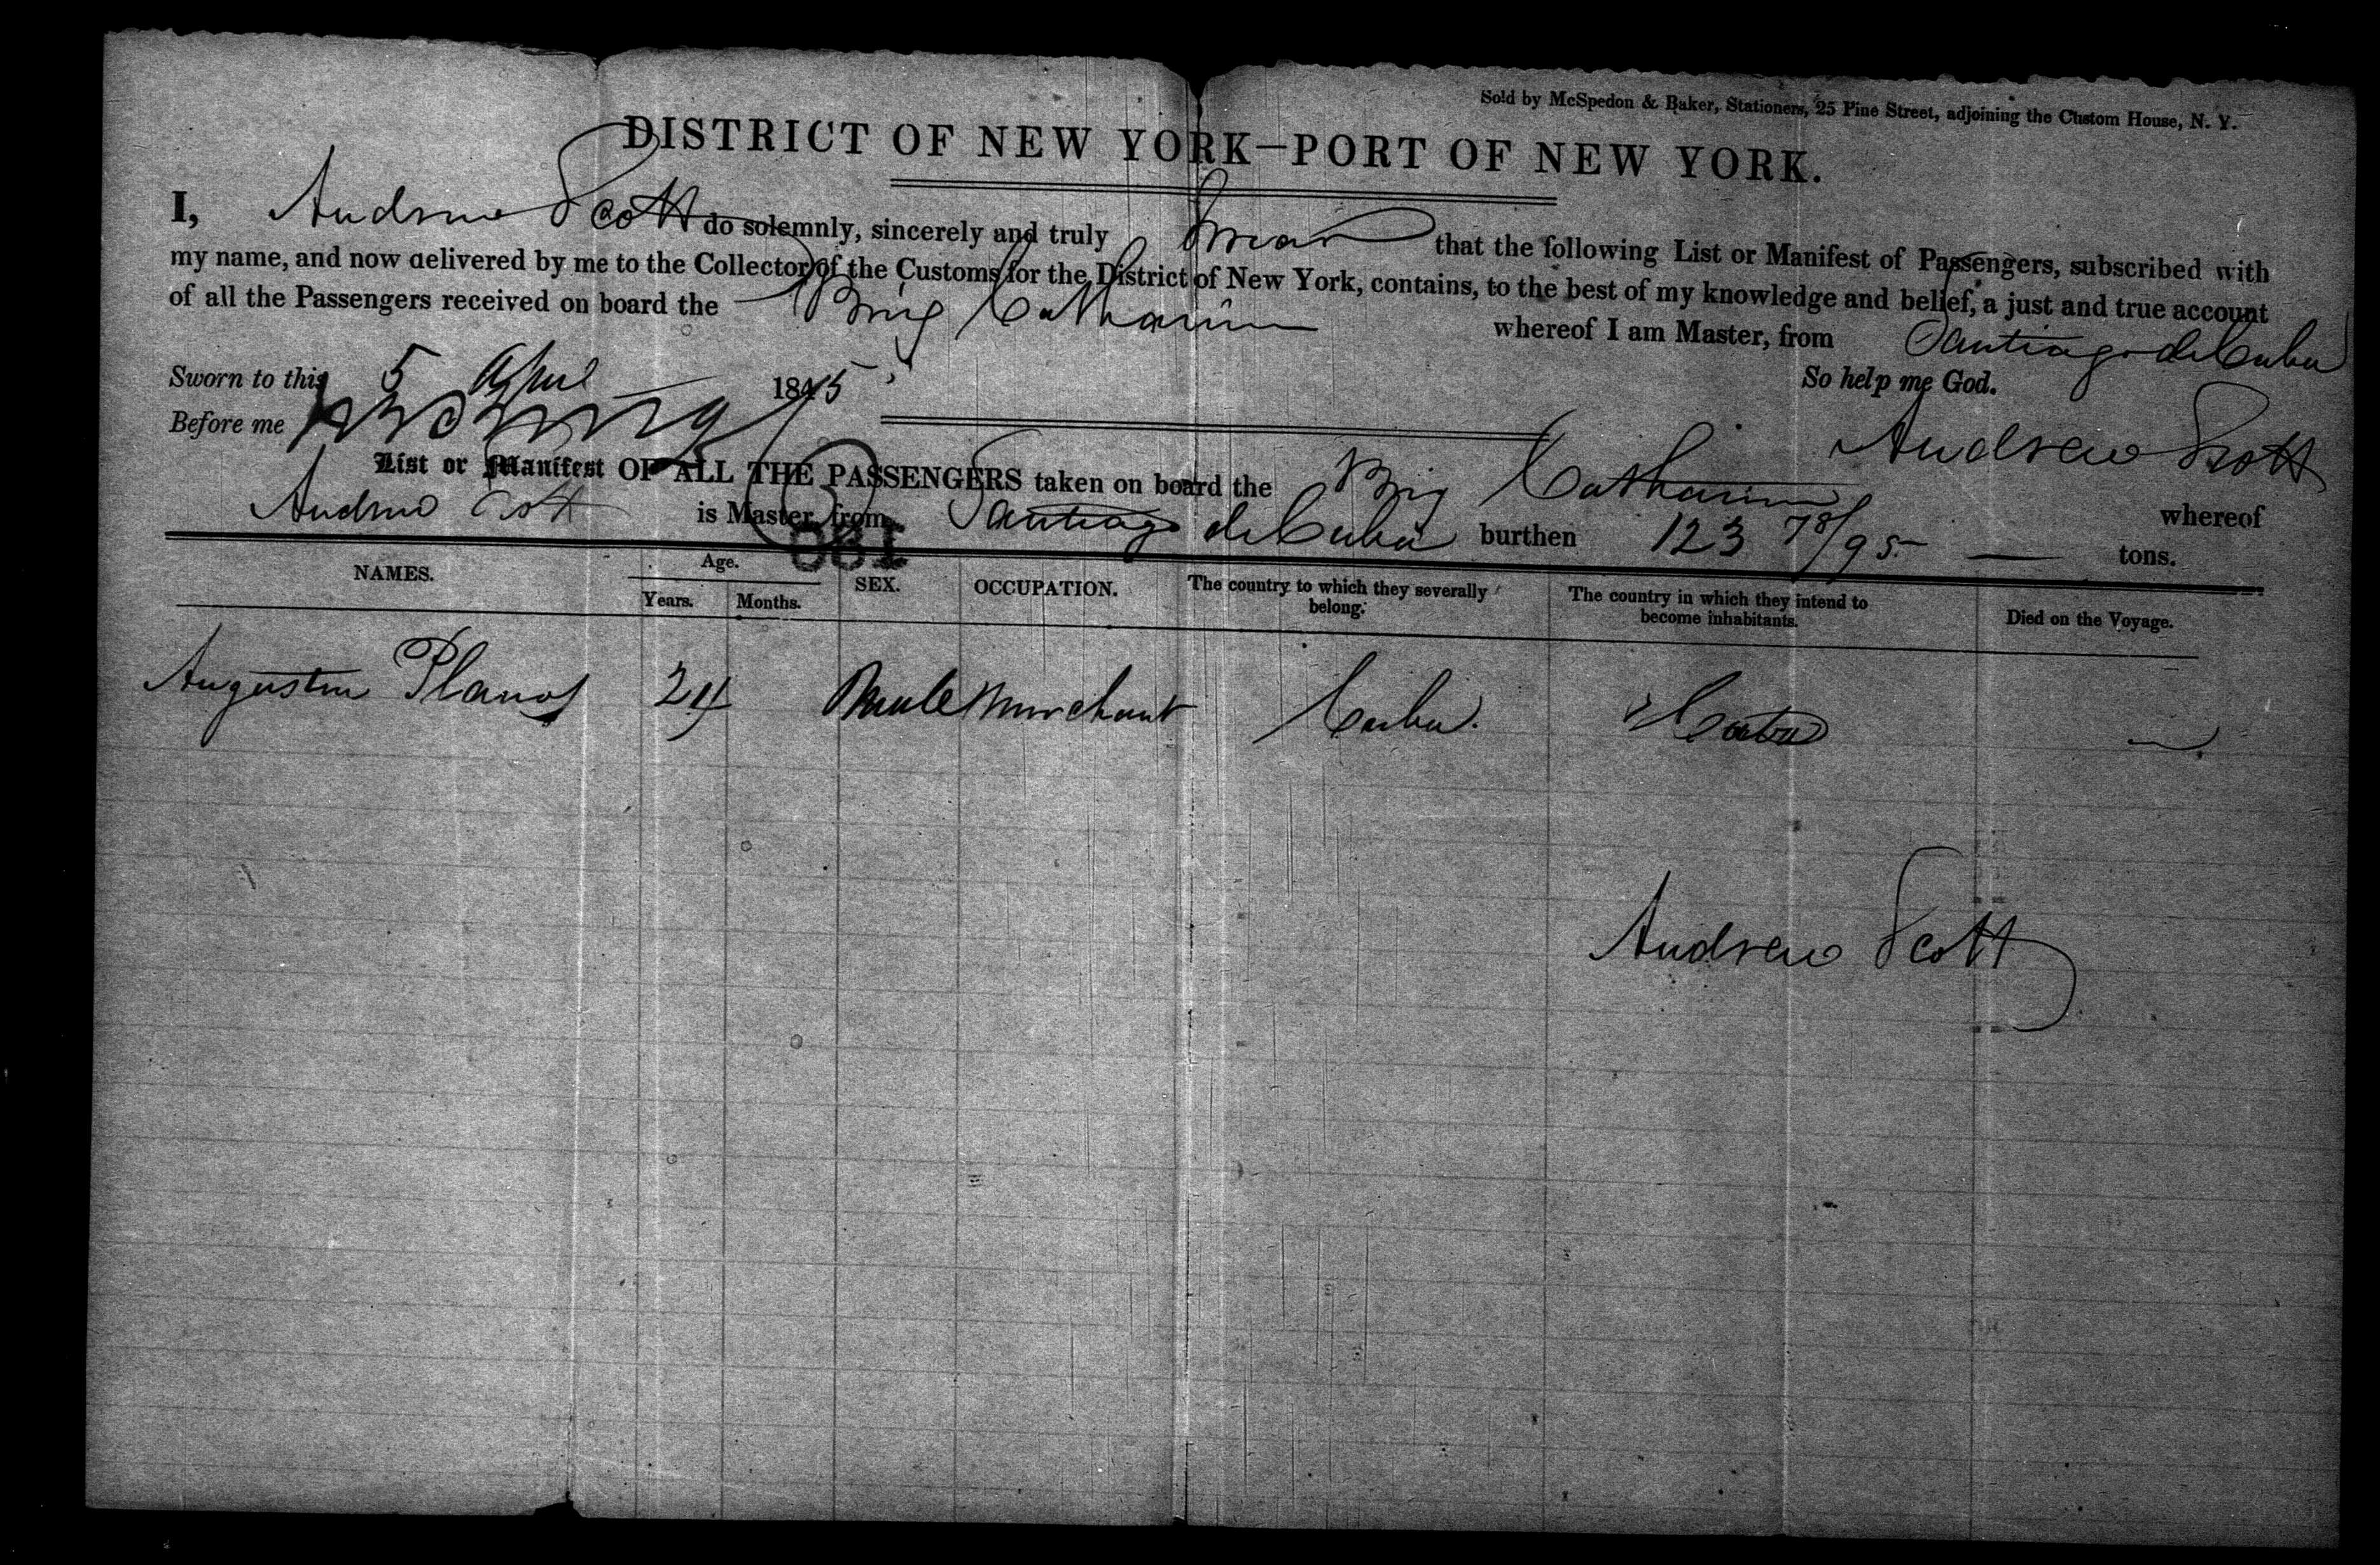 Sold by McSpedon & Baker, Stationers, 25 Pine Street, adjoining the Custom House, N. Y.
DISTRICT OF NEW YORK—PORT OF NEW YORK.
I, Andrew Scott do solemnly, sincerely and truly Swear that the following List or Manifest of Passengers, subscribed with
my name, and now delivered by me to the Collector of the Customs for the District of New York, contains, to the best of my knowledge and belief, a just and true account
of all the Passengers received on board the Brig Catharine whereof I am Master, from Santiago de Cuba
Sworn to this 5 April 1845 So help me God.
Before me
Andrew Scott
List or Manifest OF ALL THE PASSENGERS taken on board the Brig Catharine whereof
Andrew Scott is Master, from Santiago de Cuba burthen 123 78/95 tons.
NAMES. Age. SEX. OCCUPATION. The country to which they severally belong. The country in which they intend to become inhabitants. Died on the Voyage.
Years. Months.
Augustin 24 Male Merchant Cuba. Cuba
Andrew Scott